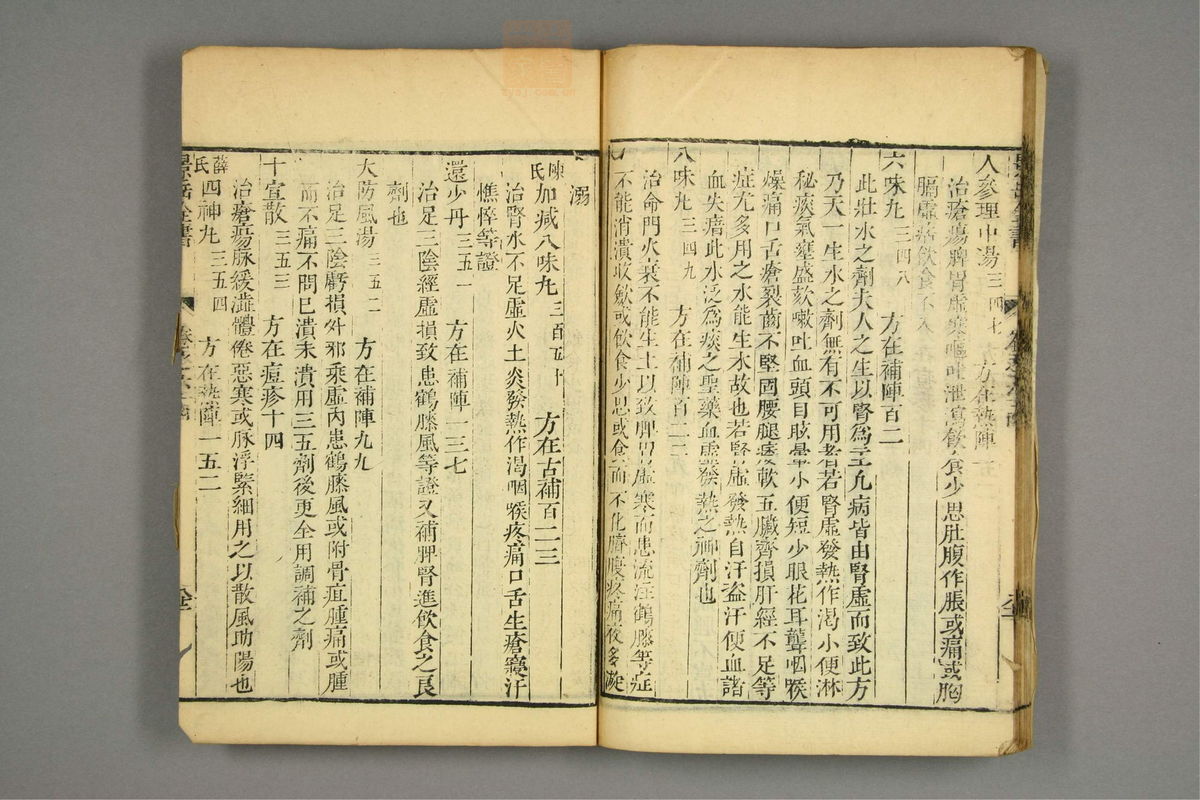 人參理中湯三四七 方在熱陣
治瘡瘍脾胃虛寒嘔吐泄瀉飲食少思肚腹作脹或痛或胸
膈虛痞飲食不入
六味丸三四八 方在補陣百二
此壯水之劑夫人之生以腎為主凡病皆由腎虛而致此方
乃天一生水之劑無有不可用者若腎虛發熱作渴小便淋
秘痰氣壅盛欬嗽吐血頭目眩暈小便短少眼花耳聾咽喉
燥痛口舌瘡裂齒不堅固腰腿痿軟五臟齊損肝經不足等
症尤多用之水能生水故也若腎虛發熱自汗盜汗便血諸
血失瘖此水泛為痰之聖藥血虛發熱之神劑也
八味丸三四九 方在補陣百二二
治命門火衰不能生土以致脾胃虛寒而患流注鶴膝等症
不能消潰收斂或飲食少思或食而不化臍腹疼痛夜多漩
溺
陳氏加減八味丸三百五十 方在古補百二三
治腎水不足虛火上炎發熱作渴咽喉疼痛口舌生瘡寢汗
憔悴等證
還少丹三五一 方在補陣一三七
治足三陰經虛損致患鶴膝風等證又補脾腎進飲食之良
劑也
大防風湯三五二 方在補陣九九
治足三陰虧損外邪乘虛內患鶴膝風或附骨疽腫痛或腫
而不痛不問已潰未潰用三五劑後更全用調補之劑
十宣散三五三 方在痘疹十四
薛氏四神丸三五四 方在熱陣一五二
治瘡瘍脉緩澁體倦惡寒或脉浮緊細用之以散風助陽也
景岳全書